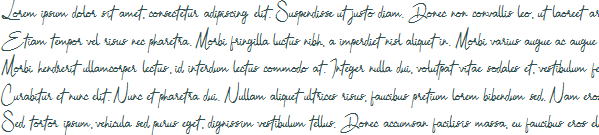 Lorem ipsum dolor sit amet, consectetur adipiscing elit. Suspendisse ut justo diam. Donec non convallis leo, ut laoreet ar
Etiam tempor vel risus nec pharetra. Morbi fringilla luctus nibh, a imperdiet nisl aliquet in. Morbi varius augue ac augue
Morbi hendrerit ullamcorper lectus, id interdum lectus commodo at. Integer nulla dui, volutpat vitae sodales et, vestibulum fe
Curabitur et nunc elit. Nunc et pharetra dui. Nullam aliquet ultrices risus, faucibus pretium lorem bibendum sed. Nam eros
Sed tortor ipsum, vehicula sed purus eget, dignissim vestibulum tellus. Donec accumsan facilisis massa, eu faucibus eros d